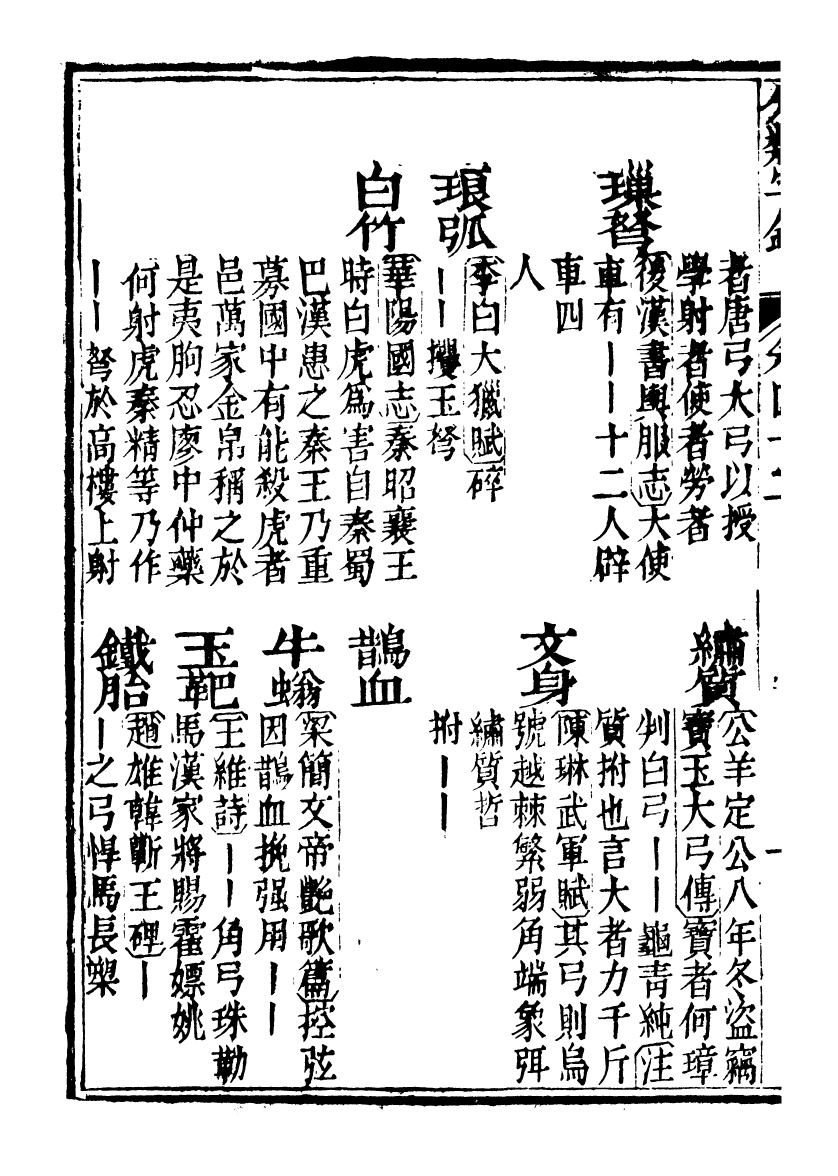 者唐弓大弓以授
學射者使者勞者
璅弩
後漢書輿服志大使
車有丨丨十二人辟
車四
人
琅弧
李白大獵賦碎
丨丨攫玉弩
白竹
華陽國志秦昭襄王
時白虎爲害自秦蜀
巴漢患之秦王乃重
募國中有能殺虎者
邑萬家金帛稱之於
是夷朐忍廖中仲藥
何射虎秦精等乃作
丨丨弩於高樓上射
繡質
公羊定公八年冬盜竊
寶玉大弓傳寶者何璋
判白弓丨丨龜青純注
質拊也言大者力千斤
文身
陳琳武軍賦其弓則烏
號越棘繁弱角端象弭
繡質哲
拊丨丨
鵲血
牛螉
梁簡文帝艷歌篇控弦
因鵲血挽强用丨丨
玉靶
王維詩丨丨角弓珠勒
馬漢家將賜霍嫖姚
鐵胎
趙雄韓蘄王碑丨
丨之弓悍馬長槊